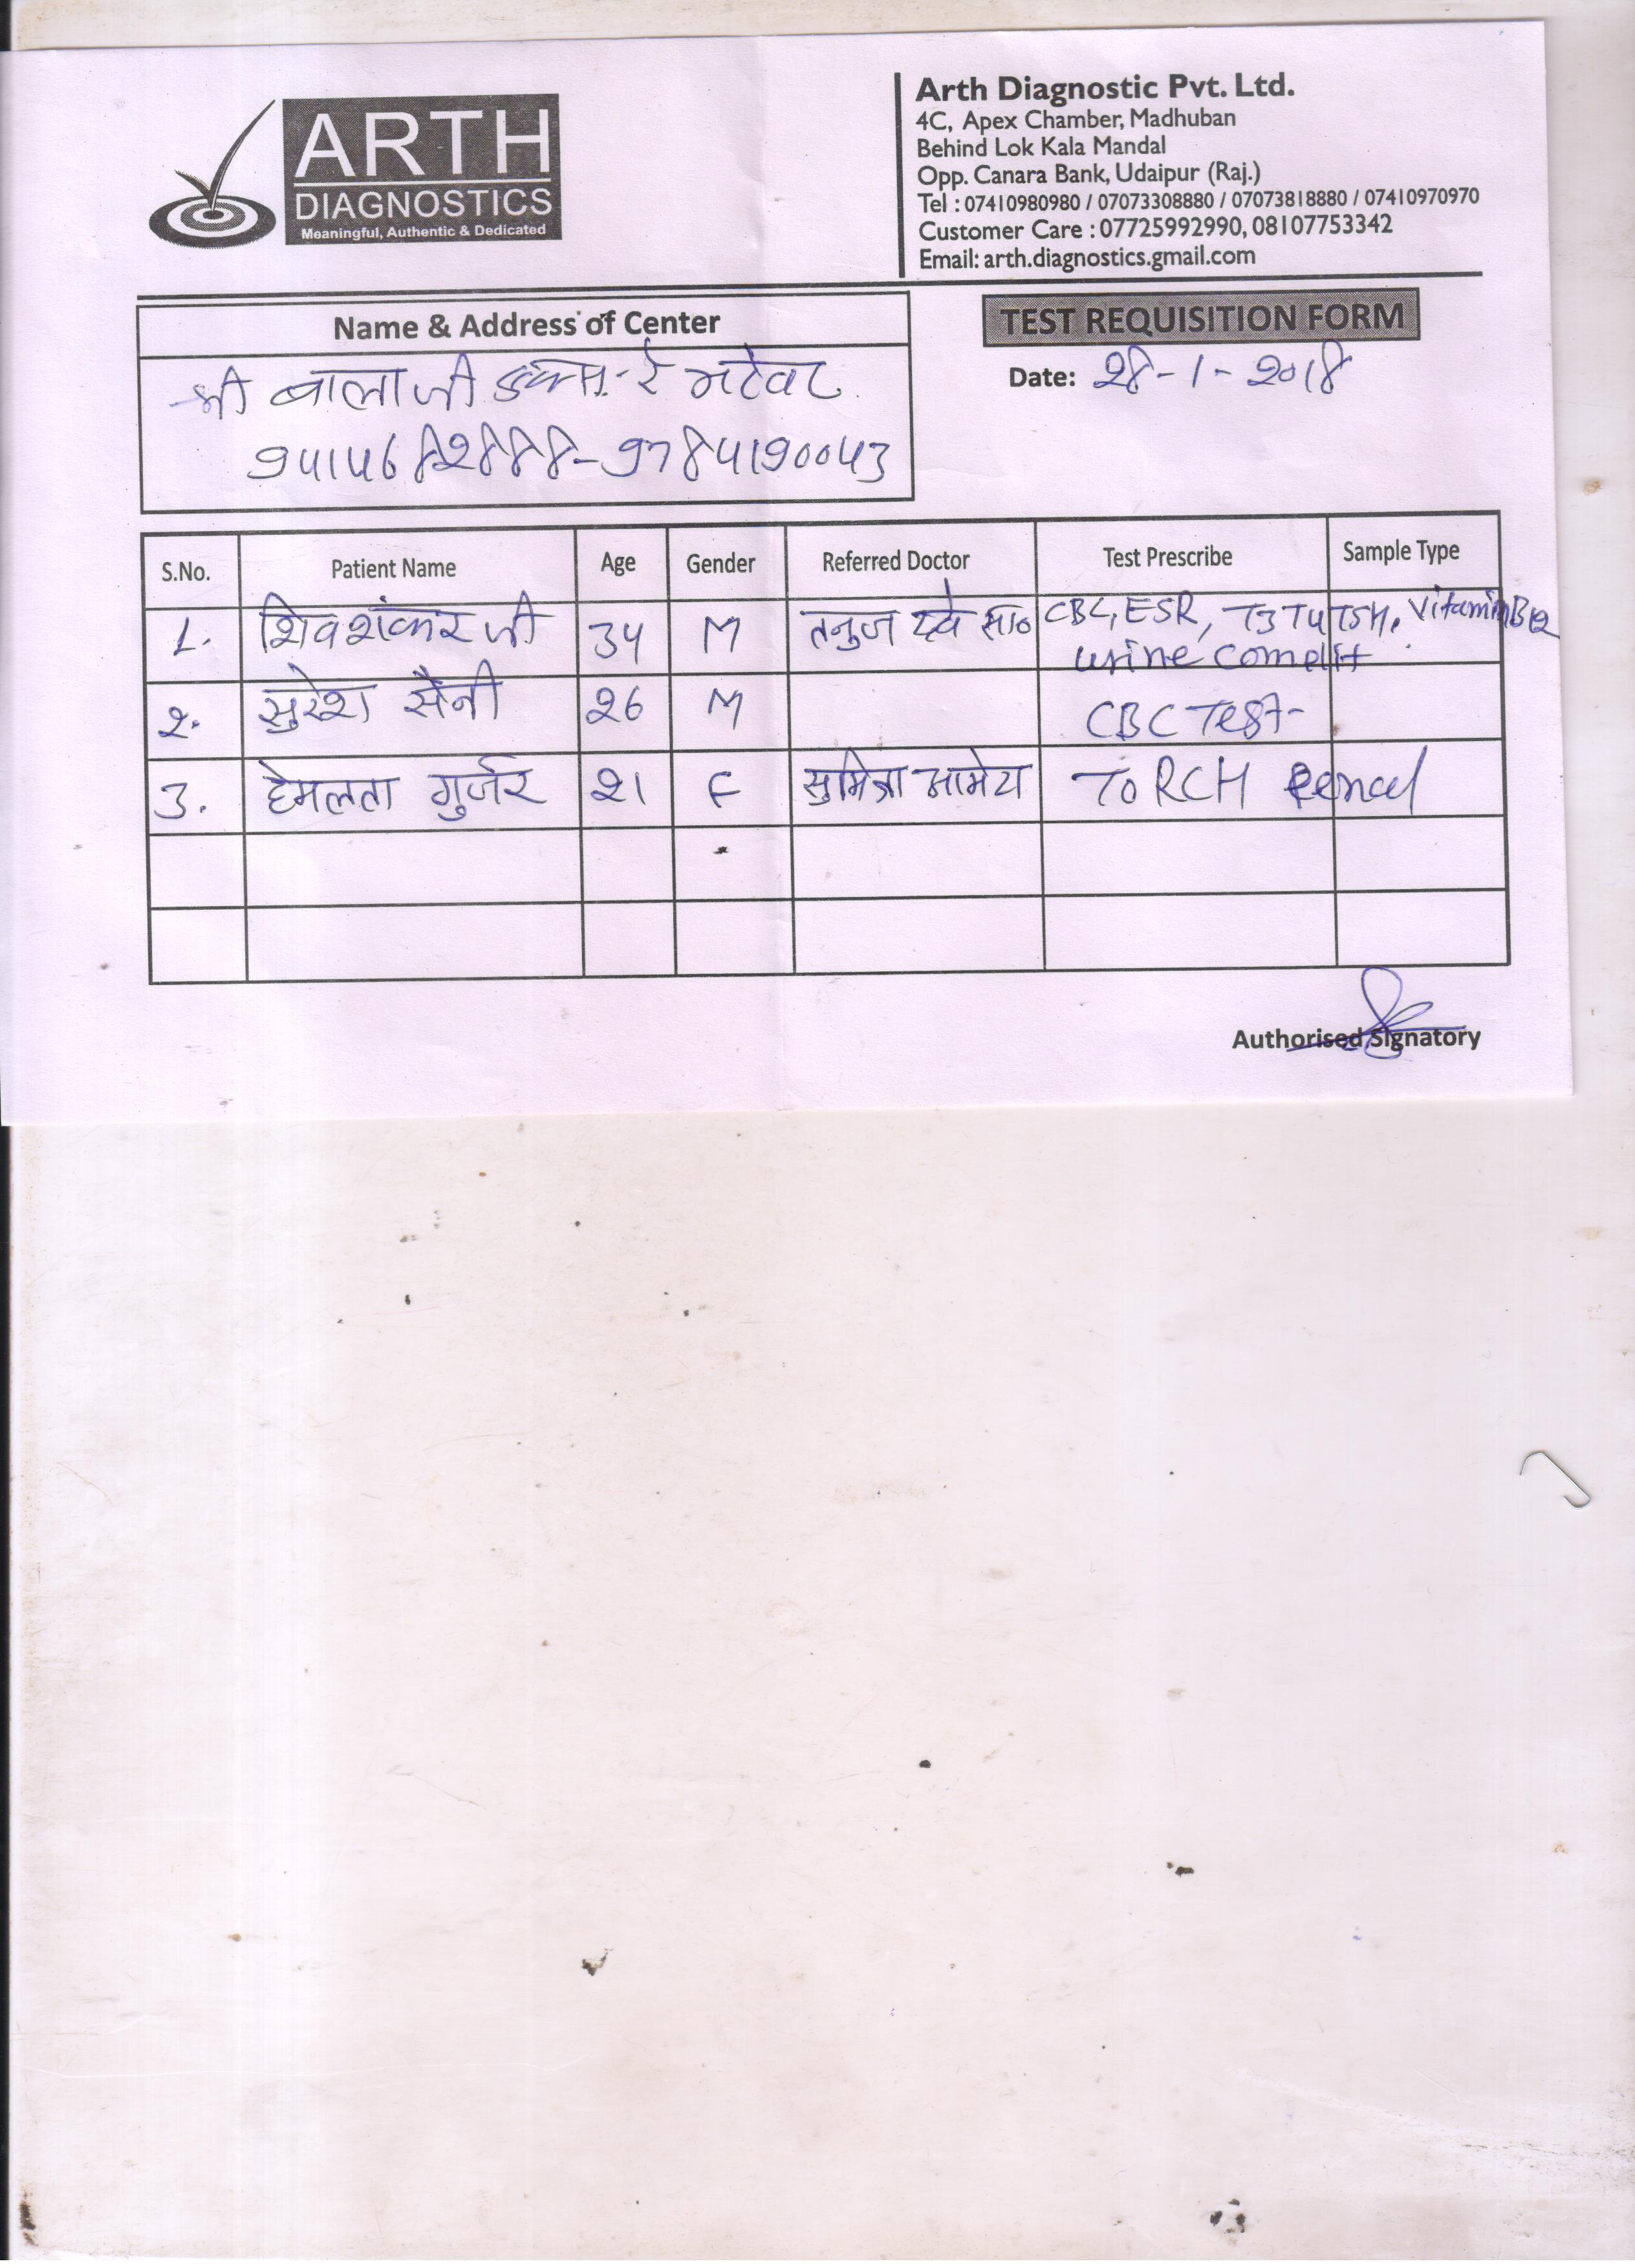 ARTH
DIAGNOSTICS
Meaningful, Authentic & Dedicated
Arth Diagnostic Pvt. Ltd.
4C, Apex Chamber, Madhuban
Behind Lok Kala Mandal
Opp. Canara Bank, Udaipur (Raj.)
Tel : 07410980980 / 07073308880 / 07073818880 / 07410970970
Customer Care : 07725992990, 08107753342
Email: arth.diagnostics.gmail.com
Name & Address of Center
TEST REQUISITION FORM
Date: 28-1-2018
श्री बालाजी एक्स-रे भटेवर
9414682888-9784190043
S.No. Patient Name Age Gender Referred Doctor Test Prescribe Sample Type
1. शिवशंकर जी 34 M तनुज दवे सा० CBC, ESR, T3 T4 TSH, Vitamin B12
urine
2. सुरेश सैनी 26 M CBC Test
3. हेमलता गुर्जर 21 F सुमित्रा TORCH
Authorised Signatory